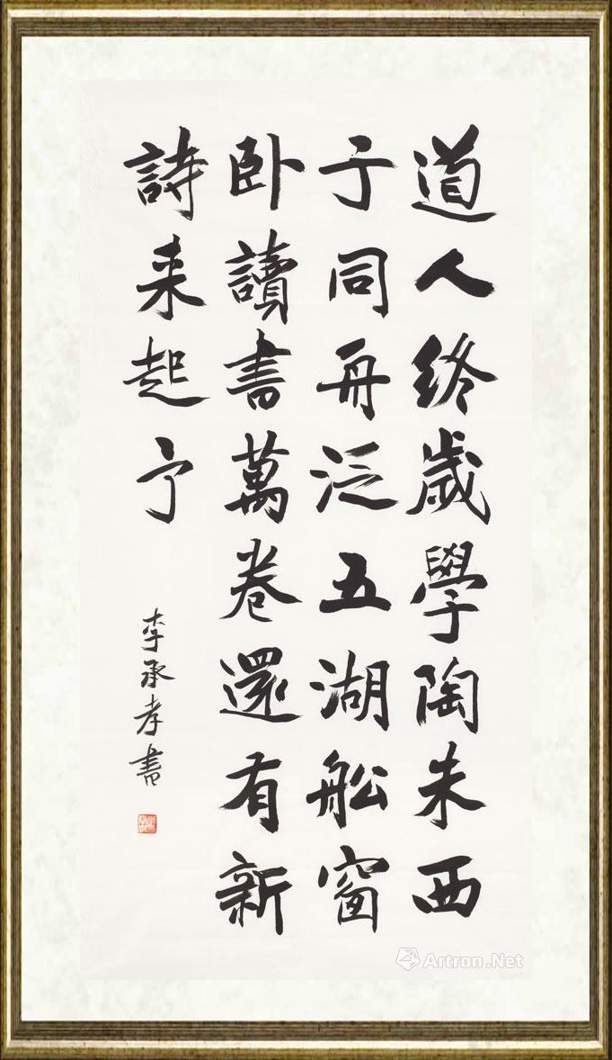 道人终歲學陶朱西
子同舟泛五湖舩窗
卧讀書萬卷還有新
詩来起予
李承孝書
Artron.Net